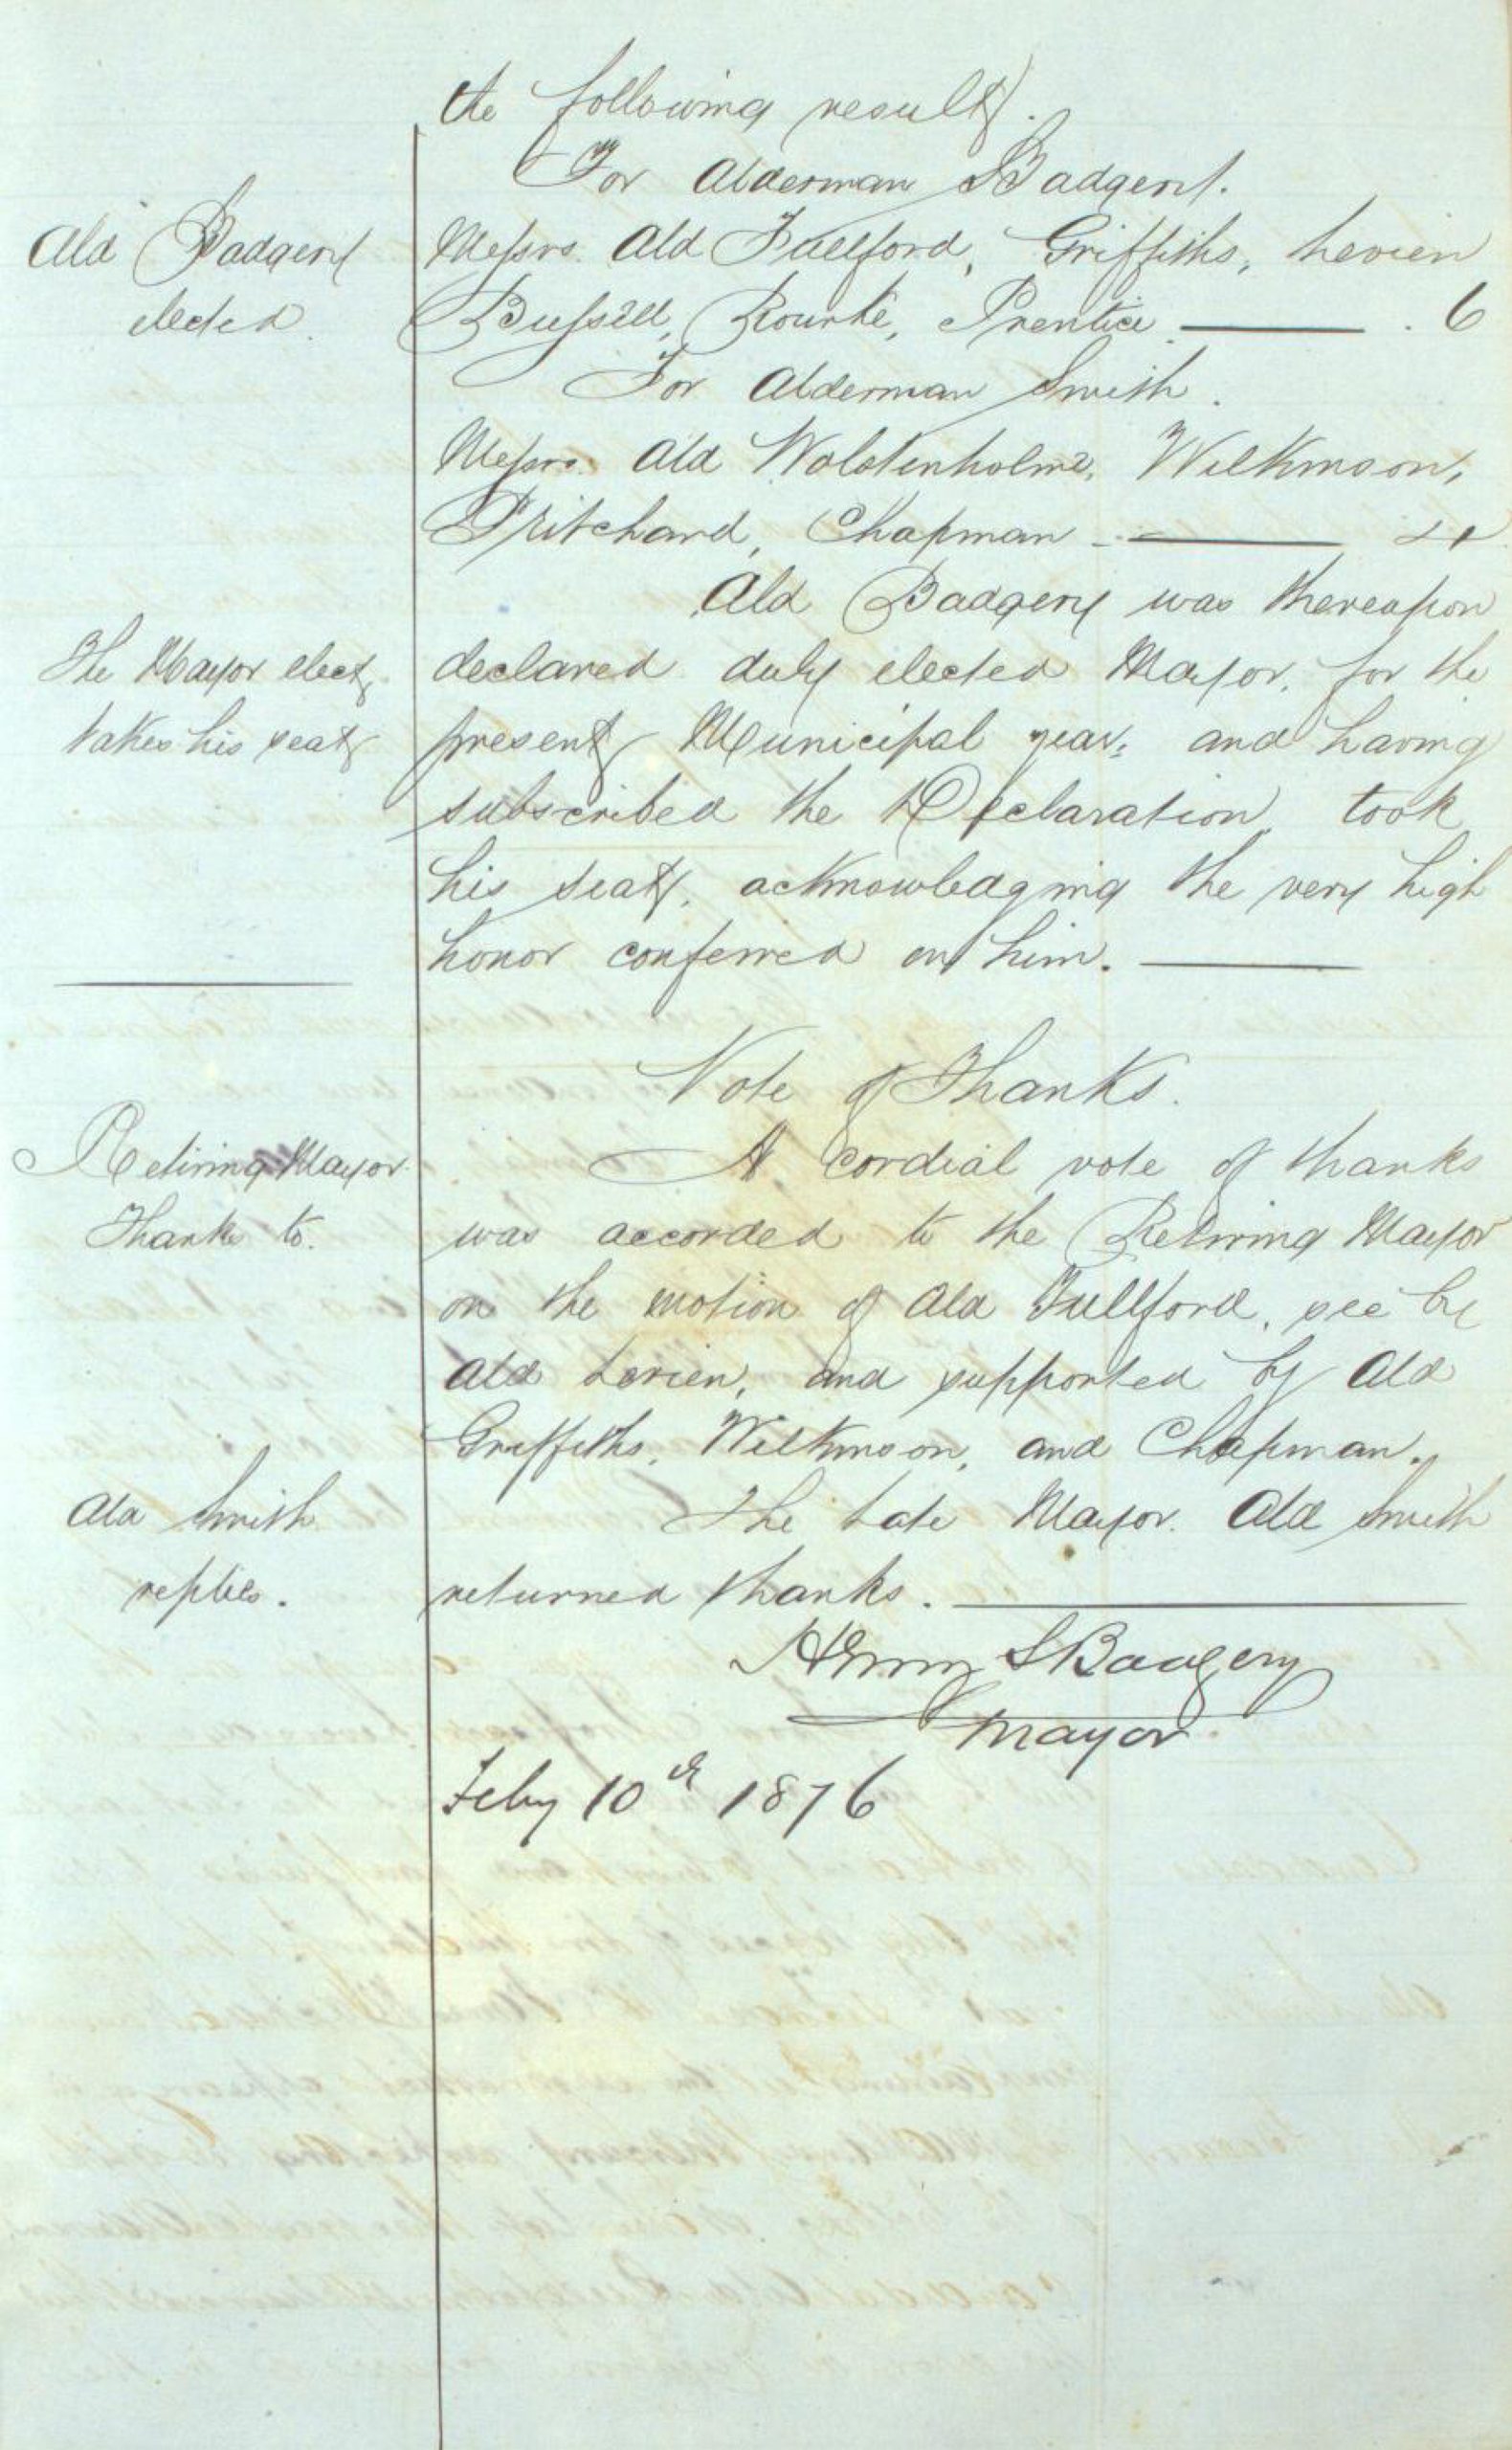 the following result.
For Alderman Badgery.
Ald Badgery
elected.
Messrs. Ald Fullford, Griffiths, Levien
Bussell, Rourke, Prentice ——— . 6
For Alderman Smith.
Messrs. Ald Wolstenholme, Wilkinson,
Pritchard, Chapman ——— 4
Ald Badgery was thereupon
The Mayor elect
takes his seat
declared duly elected Mayor, for the
present Municipal year, and having
subscribed the Declaration, took
his seat, acknowledging the very high
honor conferred on him. ———
Vote of Thanks.
Retiring Mayor
Thanks to.
A cordial vote of thanks
was accorded to the Retiring Mayor
on the motion of Ald Fullford, sec by
Ald Levien, and supported by Ald
Griffiths, Wilkinson, and Chapman.
Ald Smith
replies.
The Late Mayor. Ald Smith
returned thanks. ———
Henry S Badgery
Mayor
Feby 10th 1876